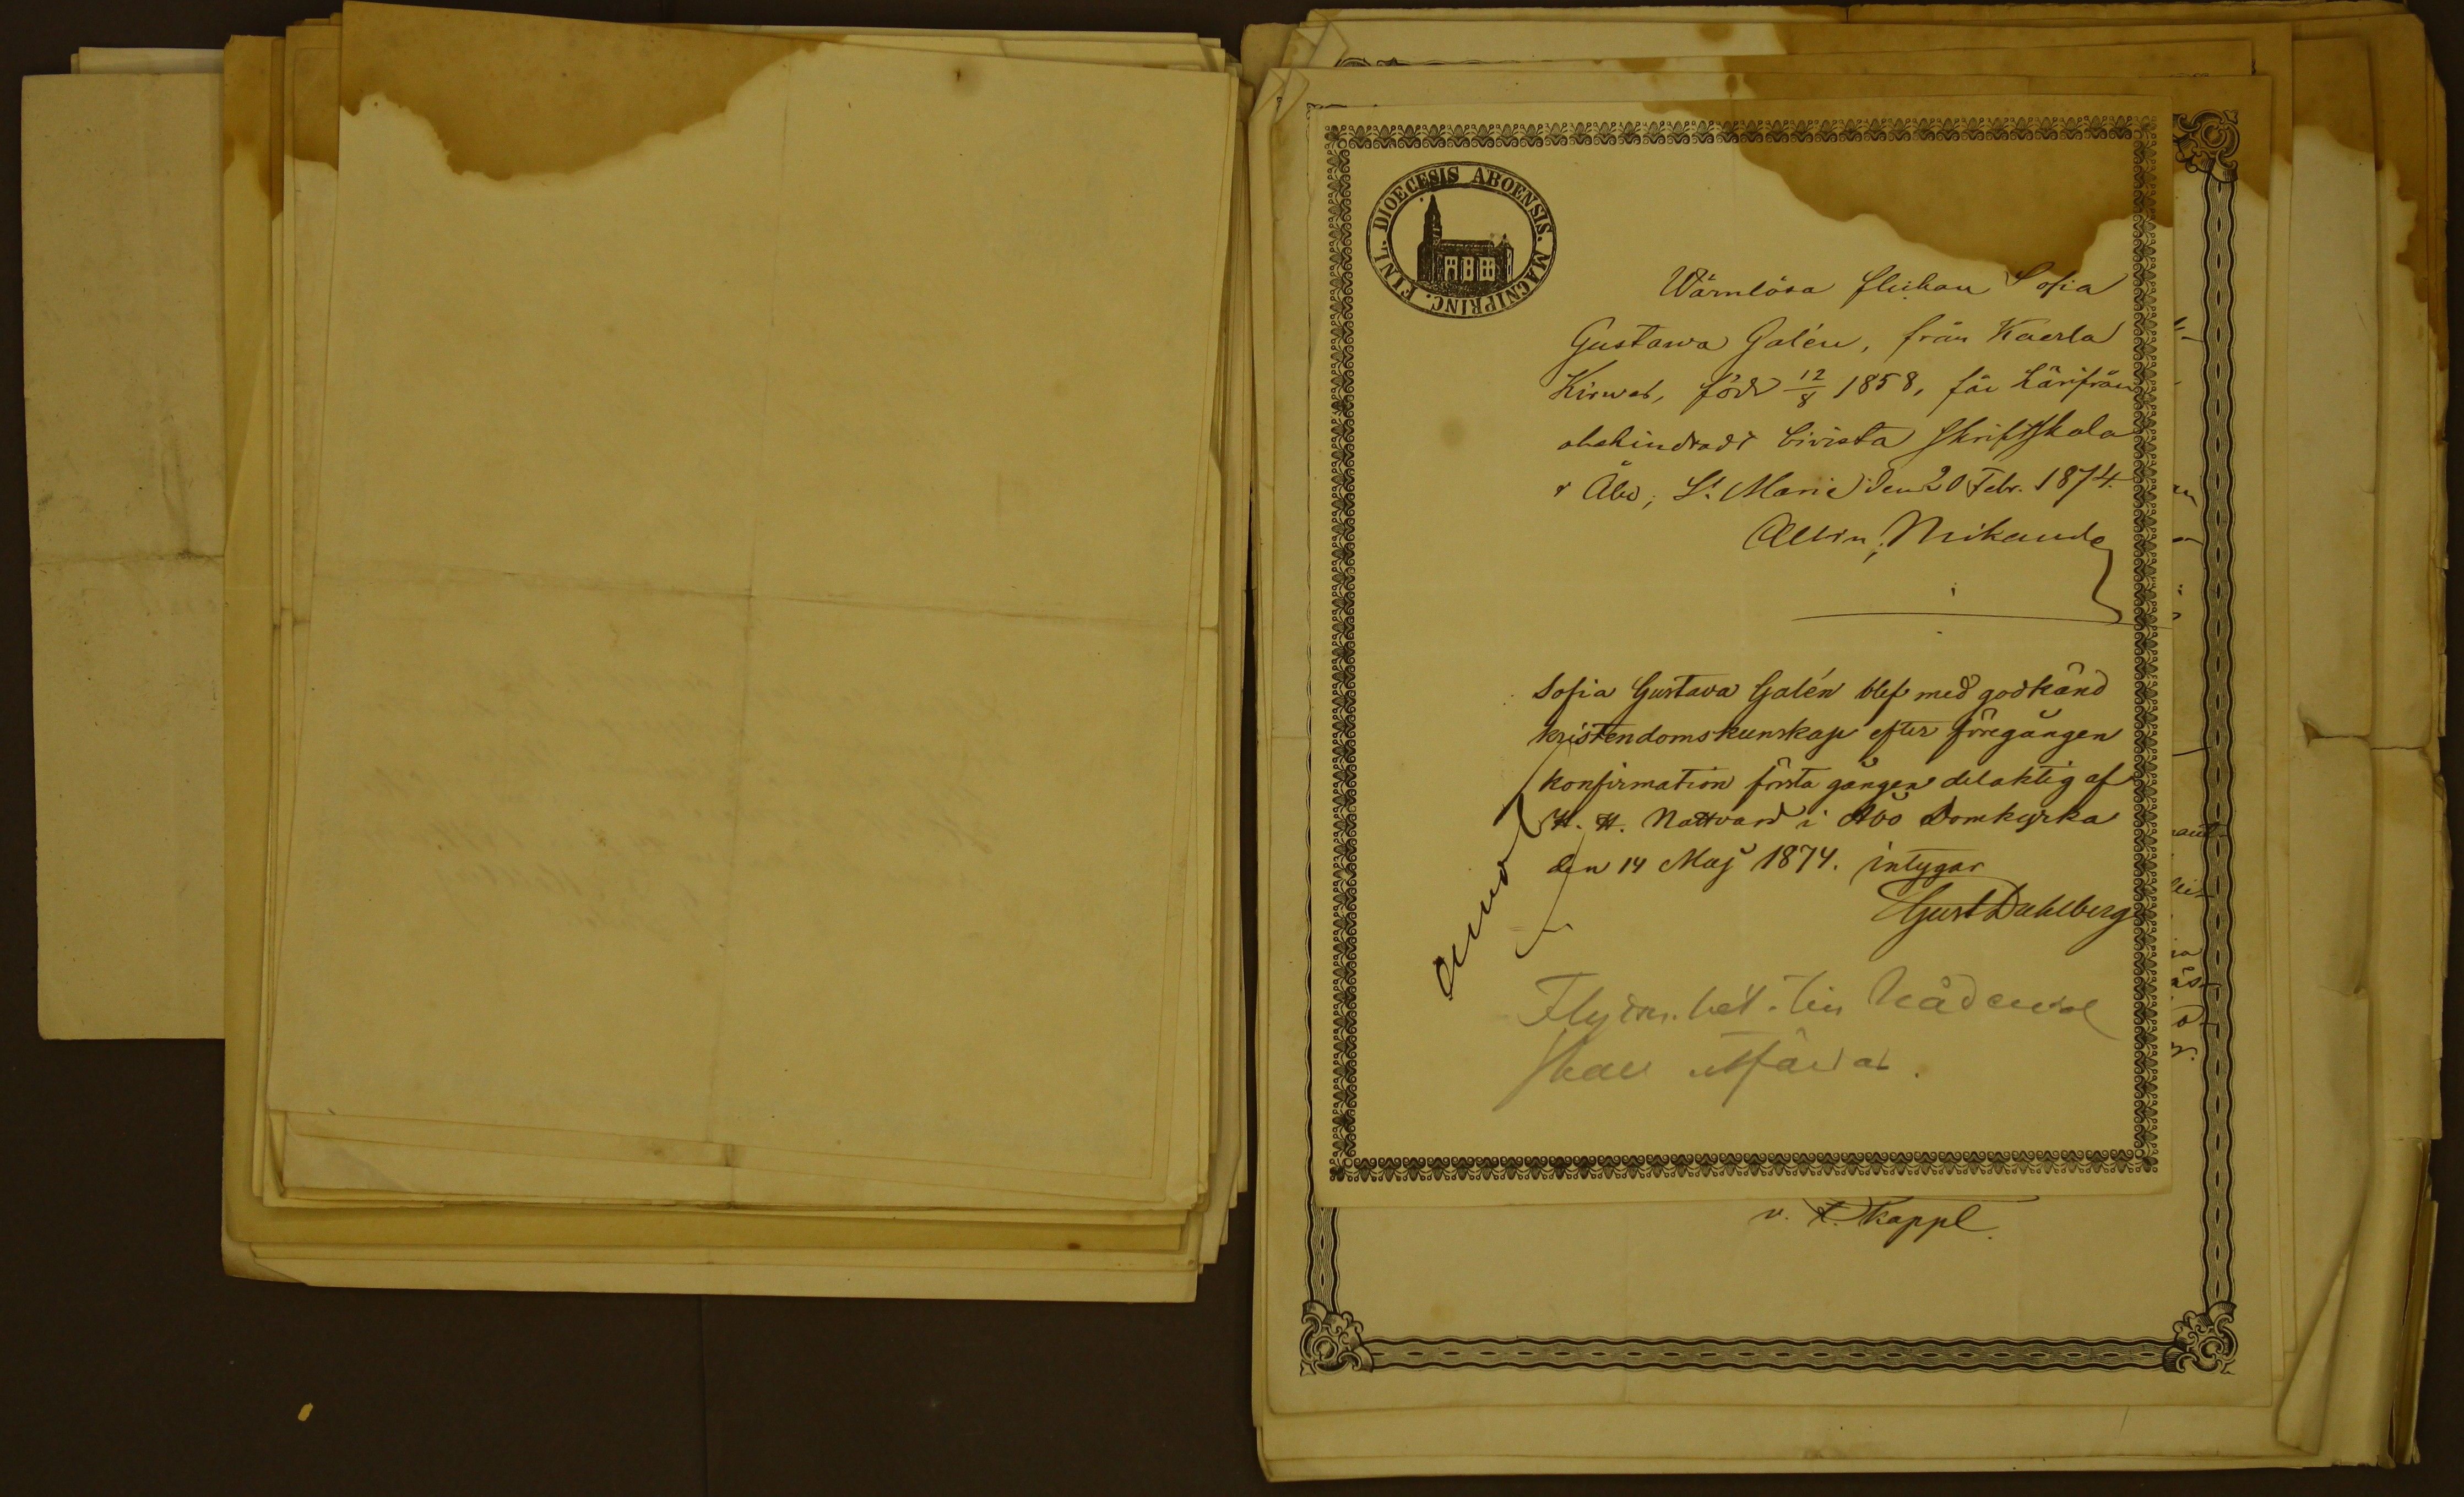 FINL. DIOECESIS ABOENSIS. MAGNIPRINC.
Wärnlösa flickan Sofia
Gustava Galén, från Kaerla
Kirwes, född 12/8 1858, får härifrån
obehindradt bivista skriftskola
i Åbo; St Marie den 20 Febr. 1874.
Albin Mikander
Sofia Gustava Galén blef med godkänd
kristendomskunskap efter föregången
konfirmation första gången delaktig af
H. H. Nattvard i Åbo Domkyrka
den 14 Maj 1874. intygar
Gust Dahlberg
Flyttn. bet. till Nådendal
skall utfärdas.
v. Kappl.